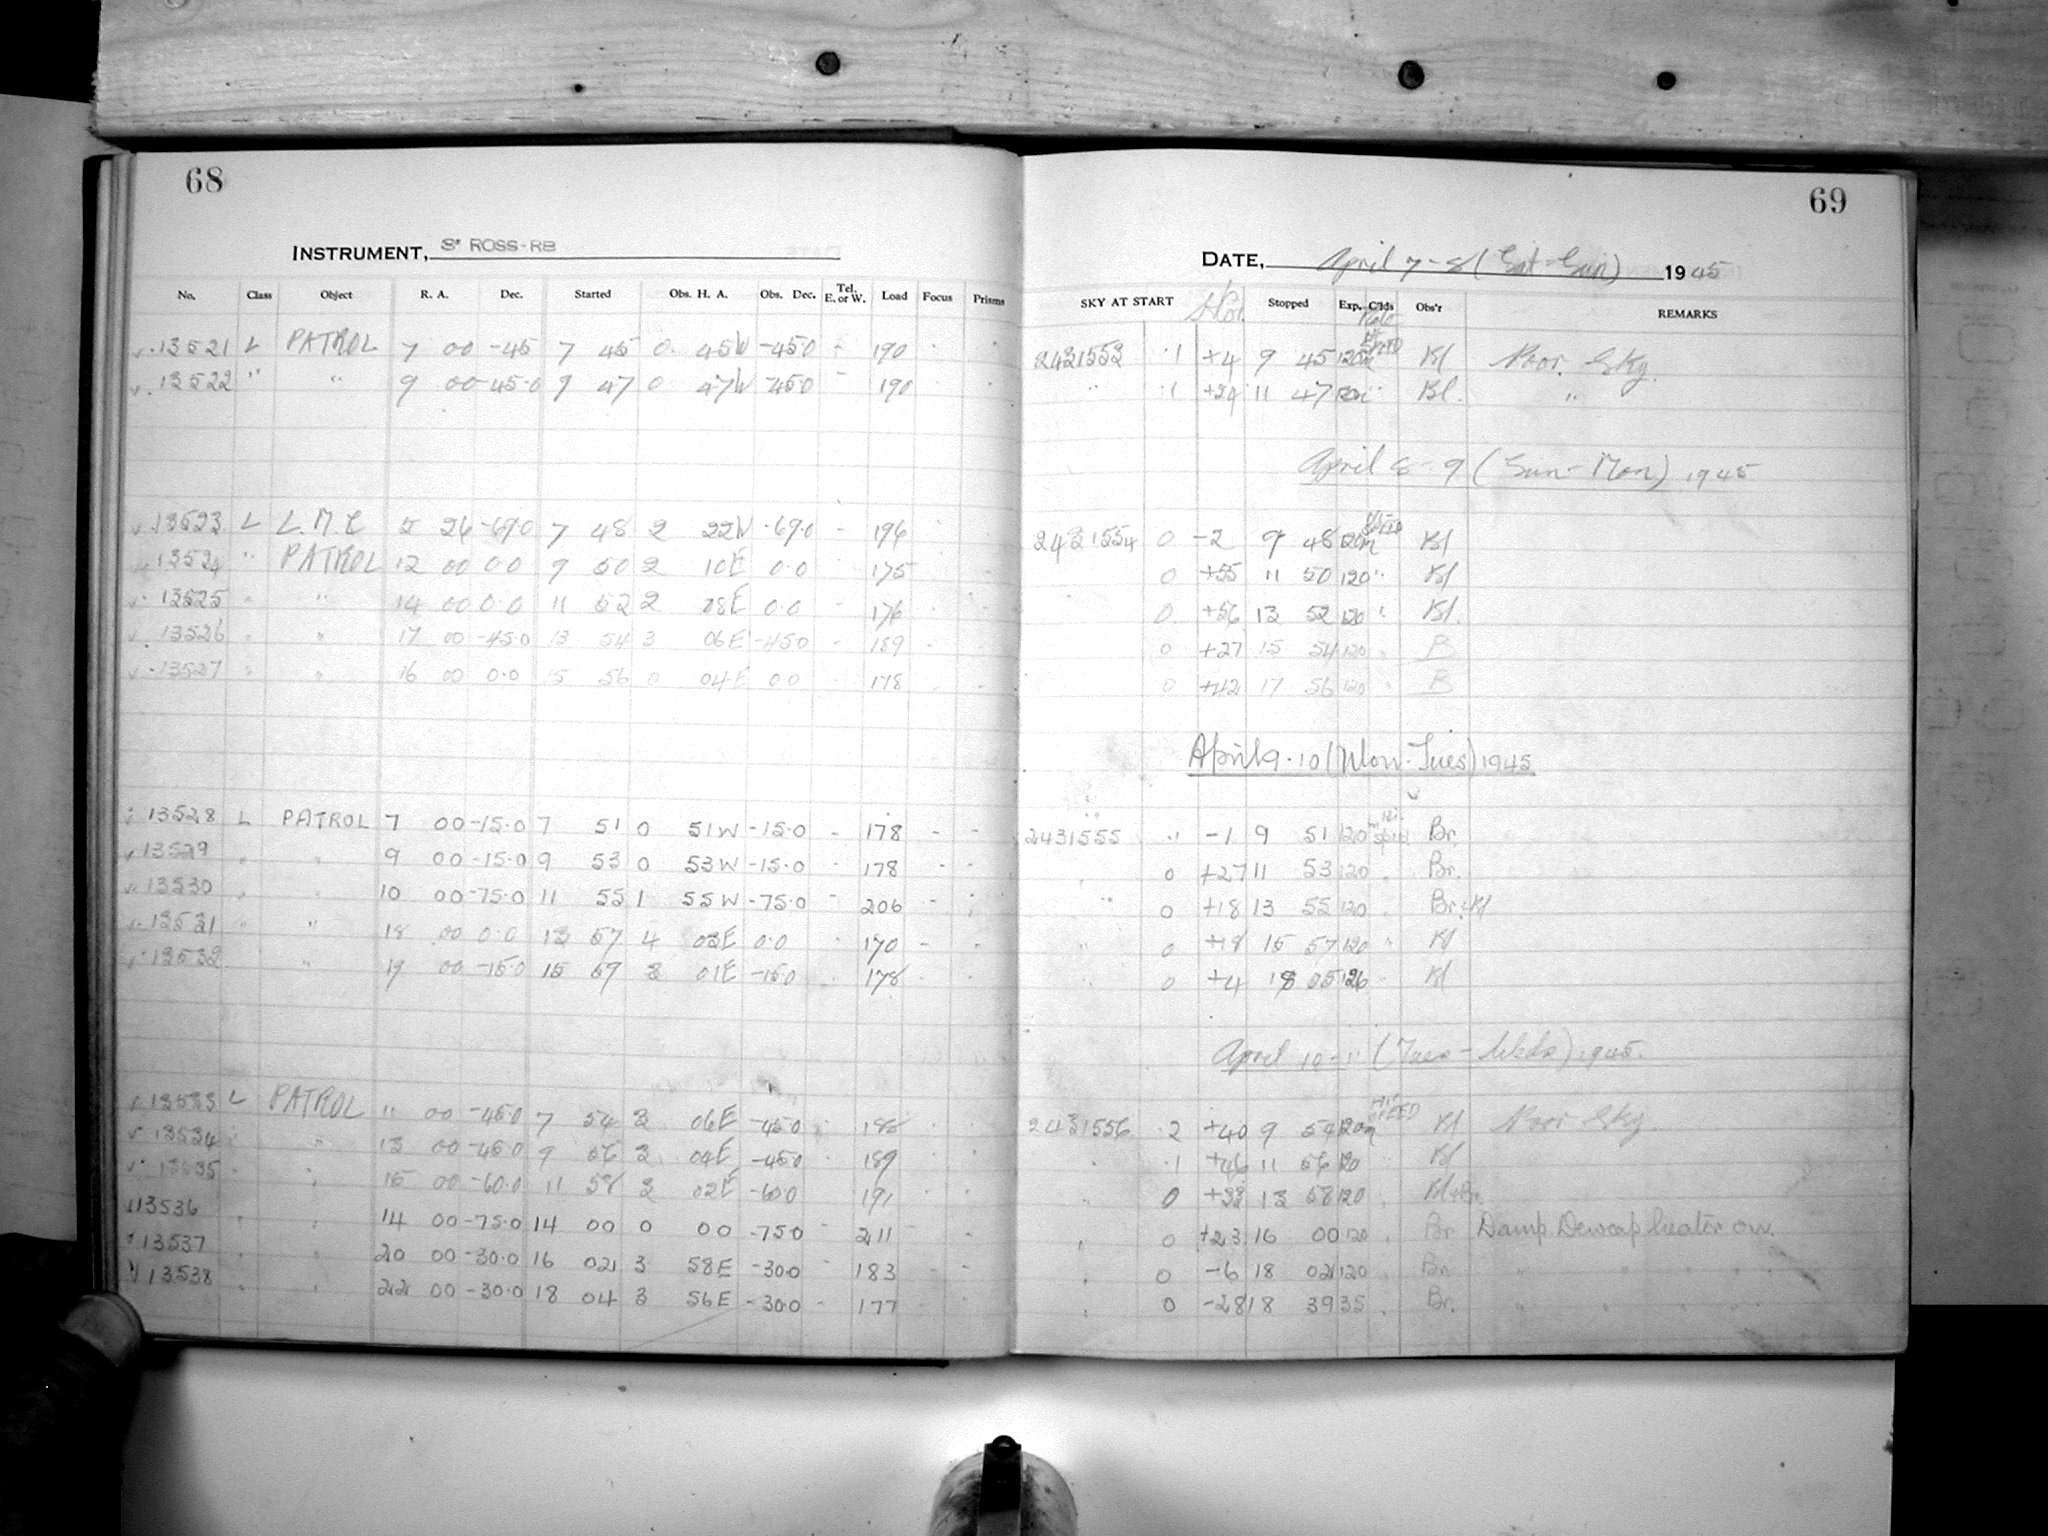 68
INSTRUMENT, 3" ROSS-RB
No. Class Object R. A. Dec. Started Obs. H. A. Obs. Dec. Tel. E. or W. Load Focus Prisms
13521 L PATROL 7 00 -45 7 45 0 45W -45.0 - 190
13522 " " 9 00 -45.0 9 47 0 47W -45.0 - 190
13523 L L.M.C 5 26 -69.0 7 48 2 22W -69.0 - 196
13524 " PATROL 12 00 0.0 9 50 2 10E 0.0 - 175
13525 " " 14 00 0.0 11 52 2 08E 0.0 - 176
13526 " " 17 00 -45.0 13 54 3 06E -45.0 - 189
13527 " " 16 00 0.0 15 56 0 04E 0.0 178
13528 L PATROL 7 00 -15.0 7 51 0 51W -15.0 - 178 - -
13529 " " 9 00 -15.0 9 53 0 53W -15.0 - 178 - -
13530 " " 10 00 -75.0 11 55 1 55W -75.0 - 206 -
13531 " " 18 00 0.0 13 57 4 03E 0.0 170 -
13532 " 19 00 -15.0 15 59 3 01E -15.0 178
13533 L PATROL 11 00 -45.0 7 54 3 06E -45.0 188
13534 " " 13 00 -45.0 9 56 3 04E -45.0 189
13535 " " 15 00 -60.0 11 58 3 02E -60.0 191
13536 " " 14 00 -75.0 14 00 0 00 -75.0 - 211 -
13537 " " 20 00 -30.0 16 02 3 58E -30.0 - 183 - -
13538 " " 22 00 -30.0 18 04 3 56E -30.0 - 177
69
DATE, April 7-8 (Sat-Sun) 1945
SKY AT START Hor. Stopped Exp. C'lds Obs'r REMARKS
2431553 .1 +4 9 45 120m Bl Poor Sky.
" .1 +24 11 47 120m " Bl. "
April 8-9 (Sun-Mon) 1945
2431554 0 -2 9 48 120m Bl
0 +55 11 50 120 " Bl
0 +56 13 52 120 " Bl.
0 +27 15 54 120 " B
0 +42 17 56 120 " B
April 9-10 (Mon-Tues) 1945
2431555 .1 -1 9 51 120m Br.
" 0 +27 11 53 120 " Br.
" 0 +18 13 55 120 " Br. + Bl
" 0 +18 15 57 120 " Bl
" 0 +4 18 05 126 " Bl
April 10-11 (Tues-Weds) 1945.
2431556 .2 +40 9 54 120m Bl Poor Sky.
" .1 +46 11 56 120 Bl
" 0 +33 13 58 120 " Bl+Br.
" 0 +23 16 00 120 " Br Damp. Dewcap heater on.
" 0 -6 18 02 120 " Br " " " "
" 0 -28 18 39 35 " Br. " " " "